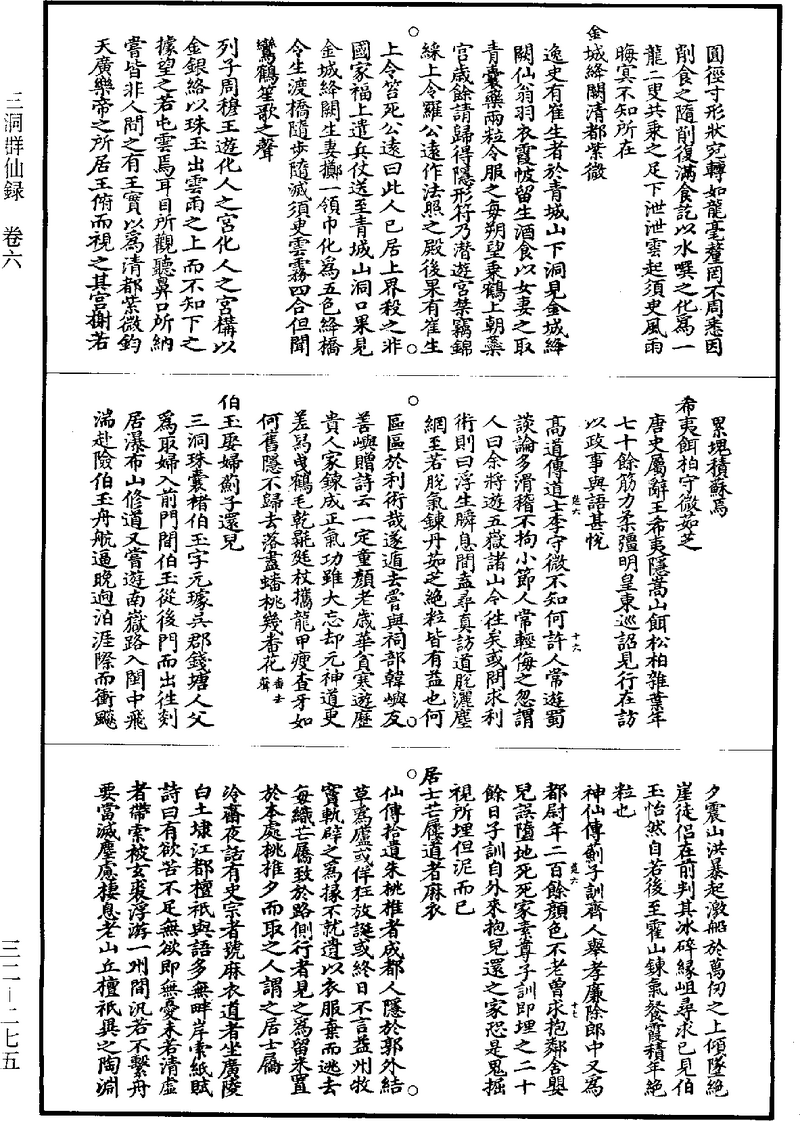 圓徑寸形狀宛轉如龍毫釐罔不周悉因
削食之隨削復滿食訖以水噀之化為一
龍二叟共乘之足下泄泄雲起須臾風雨
晦冥不知所在
金城絳闕清都紫微
逸史有崔生者於青城山下洞見金城絳
闕仙翁羽衣霞帔留生酒食以女妻之取
青囊藥兩粒令服之每朔望乘鶴上朝蘂
宮歲餘請歸得隱形符乃潜遊宮禁竊錦
綵上令羅公遠作法照之殿後果有崔生
上令笞死公遠曰此人已居上界殺之非
國家福上遣兵仗送至青城山洞口果見
金城絳闕生妻擲一領巾化為五色絳橋
令生渡橋隨步隨滅須臾雲霧四合但聞
鸞鶴笙歌之聲
列子周穆王遊化人之宮化人之宮構以
金銀絡以珠玉出雲雨之上而不知下之
據望之若屯雲焉耳目所觀聽鼻口所納
嘗皆非人間之有王實以為清都紫微鈞
天廣樂帝之所居王俯而視之其宮榭若
累塊積蘇焉
希夷餌柏守微茹芝
唐史屬辭王希夷隱嵩山餌松柏雜葉年
七十餘筋力柔彊明皇東巡詔見行在訪
以政事與語甚悅
高道傳道士李守微不知何許人常遊蜀
談論多滑稽不拘小節人常輕侮之忽謂
人曰余將遊五嶽諸山今往矣或問求利
術則曰浮生瞬息間盍尋真訪道脫灑塵
網至若脫氣鍊丹茹芝絕粒皆有益也何
區區於利術哉遂遁去嘗與祠部韓嶼友
善嶼贈詩云一定童顏老歲華貧寒遊歷
貴人家鍊成正氣功雖大忘却元神道更
差舄曳鶴毛乾毾𣰆杖攜龍甲瘦查牙如
何舊隱不歸去落盡蟠桃幾番花番士聲
伯玉娶婦薊子還兒
三洞珠囊褚伯玉字元璩吳郡錢塘人父
為取婦入前門間伯玉從後門而出往剡
居瀑布山修道又嘗遊南嶽路入閩中飛
湍赴險伯玉舟航逼晚迥泊涯際而衝飈
夕震山洪暴起激船於萬仞之上傾墜絕
崖徒侶在前判其冰碎緣岨尋求已見伯
玉怡然自若後至霍山鍊氣餐霞積年絕
粒也
神仙傳薊子訓齊人舉孝廉除郎中又為
都尉年二百餘顏色不老曾求抱鄰舍嬰
兒誤墮地死死家素尊子訓即埋之二十
餘日子訓自外來抱兒還之家恐是鬼掘
視所埋但泥而已
居士芒屩道者麻衣
仙傳拾遺朱桃椎者成都人隱於郭外結
草為廬或佯狂放誕或終日不言益州牧
竇軌辟之為掾不就遺以衣服棄而逃去
每織芒屩致於路側行者見之為留米置
於本處桃椎夕而取之人謂之居士屩
冷齋夜話有史宗者號麻衣道者坐廣陵
白土埭江都檀祇與語多無畔岸索紙賦
詩曰有欲苦不足無欲即無憂未若清虛
者帶索被玄裘浮游一州間汎若不繫舟
要當滅塵慮棲息老山丘檀祇異之陶淵
三洞群仙録　卷六
三二—二七五